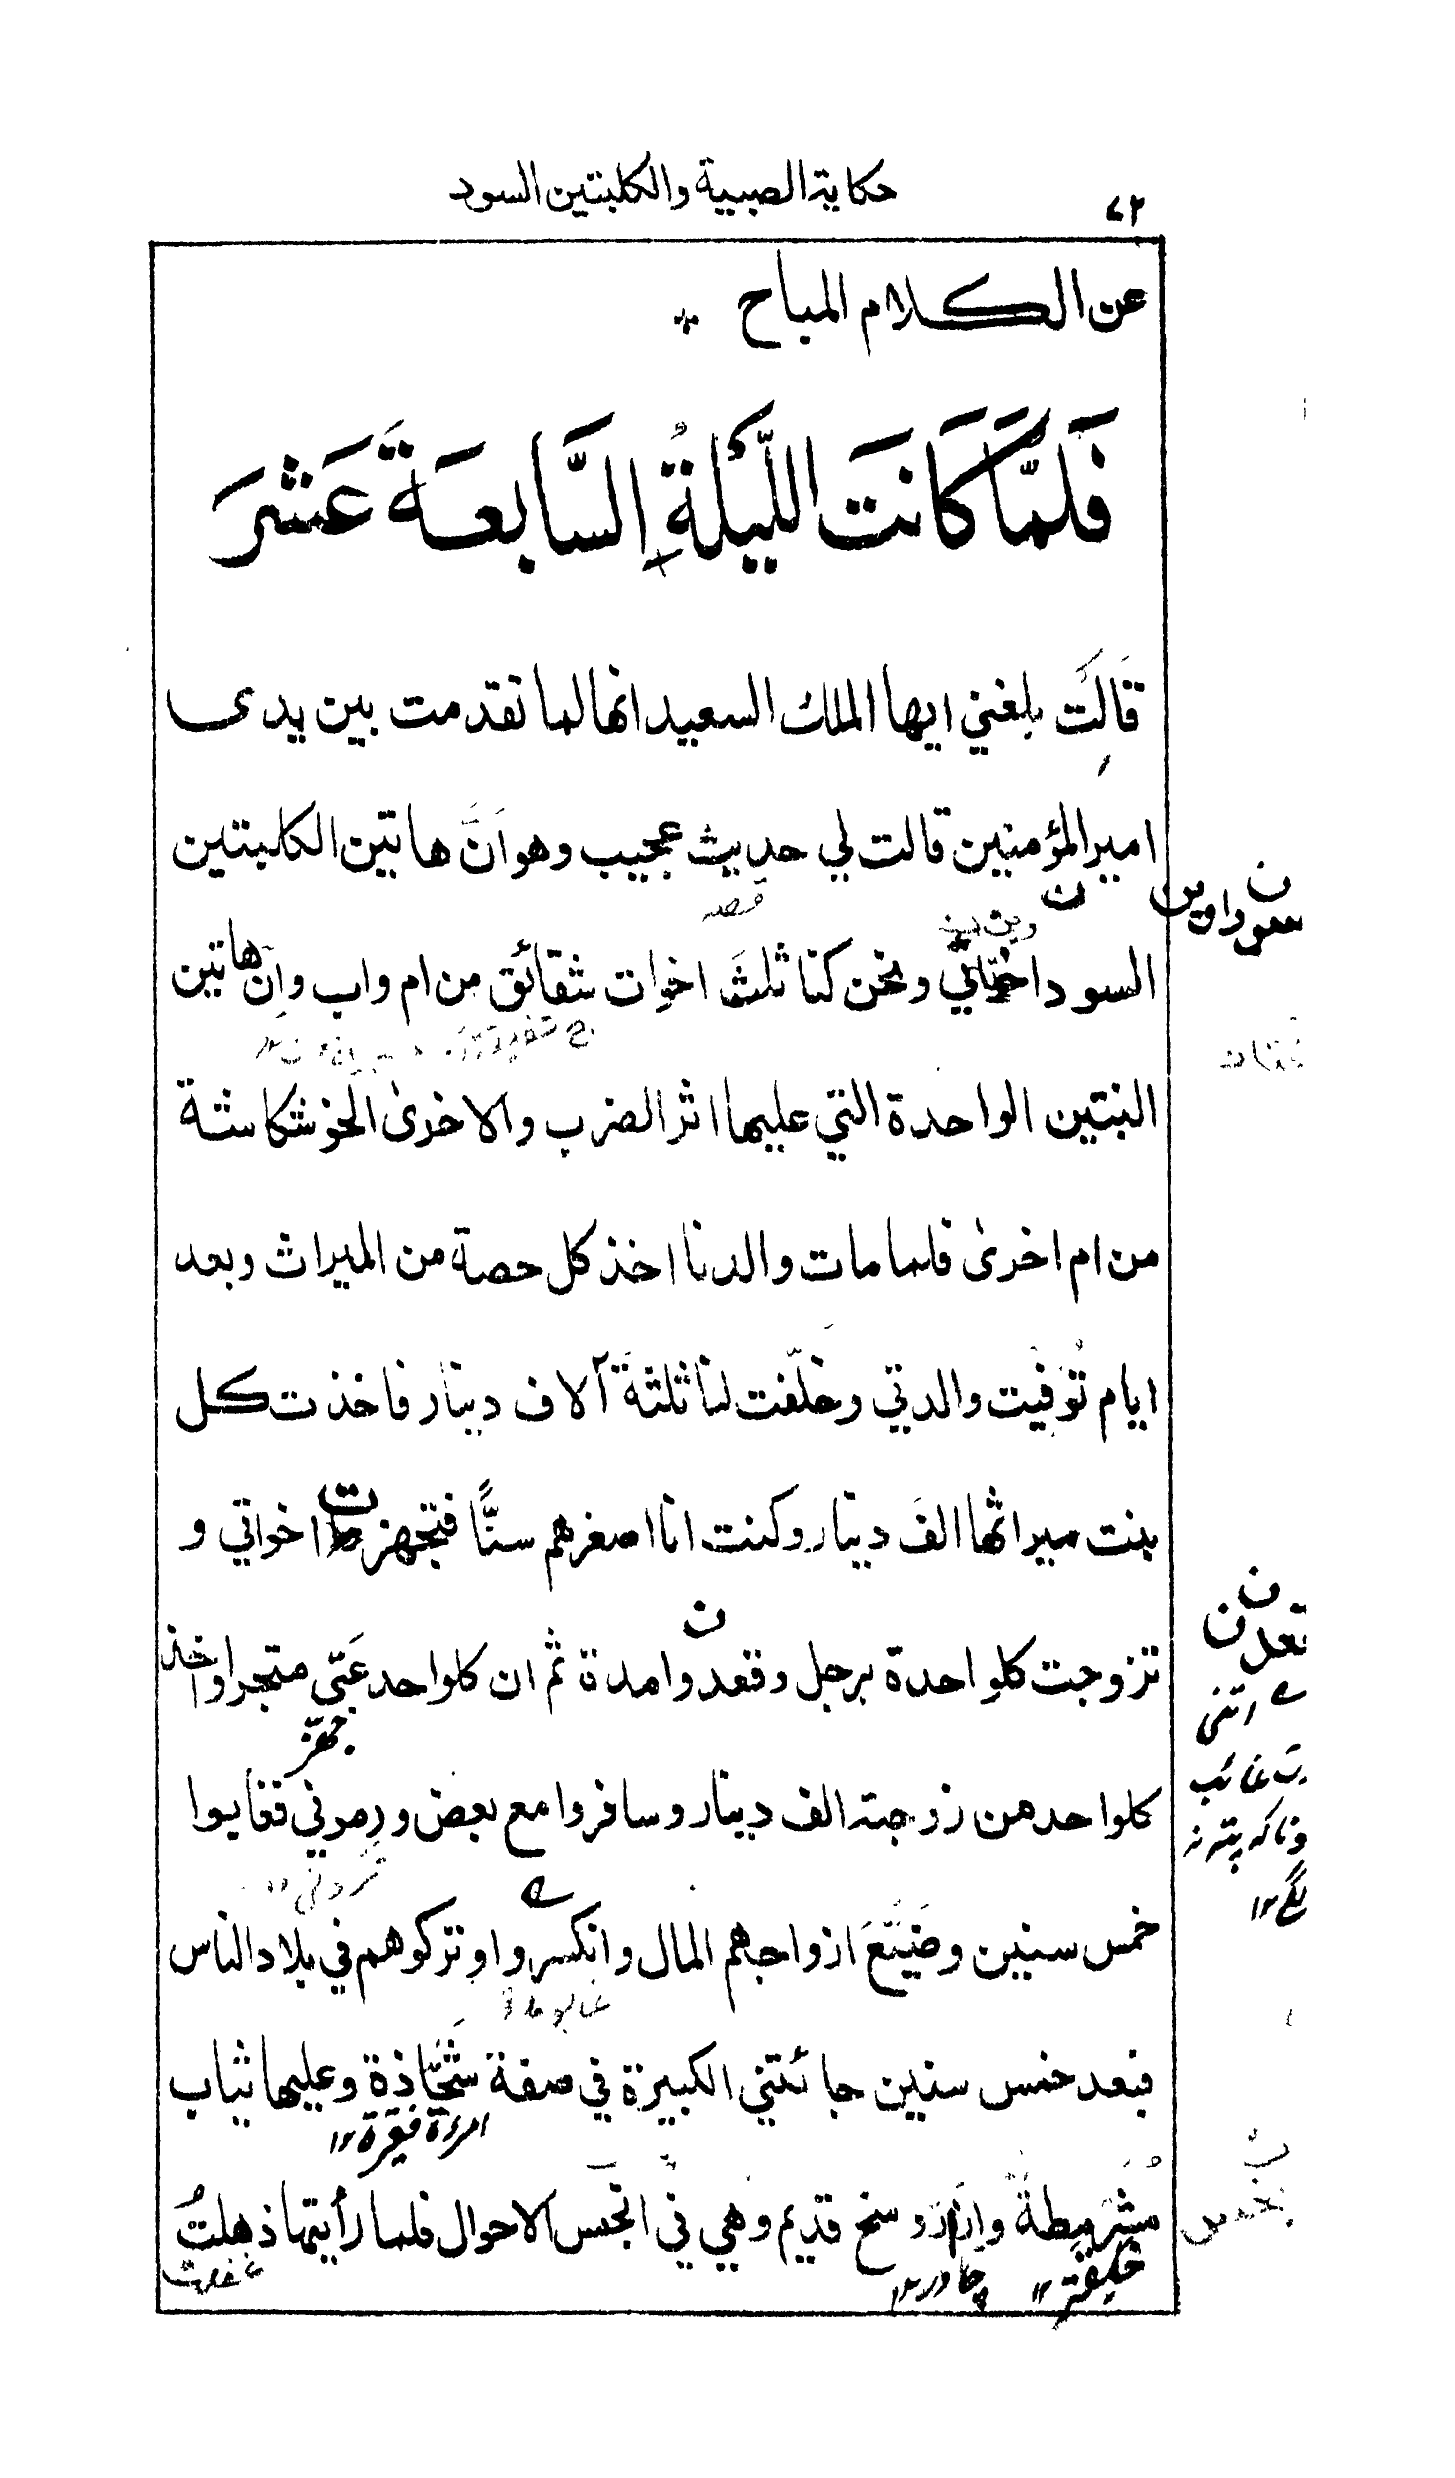 ٧٢ حكاية الصبية والكلبتين السود
عن الكلام المباح
فَلَمَّا كَانَت اللَّيْلَةُ السَّابعَةَ عَشَرَ
قَالَت بلغني ايها الملك السعيد انها لما تقدمت بين يدى
امير المؤمنين قالت لي حديث عجيب وهو انَّ هاتين الكلبتين
قصه
السود اختاي ونحن كنا ثلث اخوات شقائق من ام واب وان هاتين
البنتين الواحدة التي عليها اثر الضرب والاخرى الخوشكاشة
من ام اخرى فلما مات والدنا اخذ كل حصة من الميراث وبعد
ايام تُوفيت والدتي وخلّفت لنا ثلثة آلاف دينار فاخذت كل
بنت ميراثها الف دينار وكنت انا اصغرهم سنًّا فتجهزت اخواتي و
ن
تزوجت كلواحدة برجل وقعدوا مدة ثم ان كلواحد عَبّي متجرا واخذ
جهّز
كلواحد من زوجته الف دينار وسافروا مع بعض ورموني فغابوا
خمس سنين وضَيَّعَ ازواجهم المال وانكسروا وتركوهم في بلاد الناس
فبعد خمس سنين جائتني الكبيرة في صفة شَحّاذة وعليها ثياب
امرءة فقيرة ١٢
مُشَرمطةً وازار وسخ قديم وهي في انجس الاحوال فلما رأيتها ذهلتُ
چادر ١٢
غفلت
ن
سوداوين
ن
قعدن